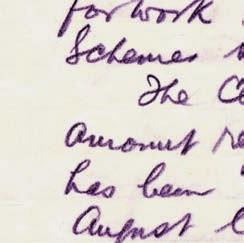 for work
Schemes
The
amount
has been
August